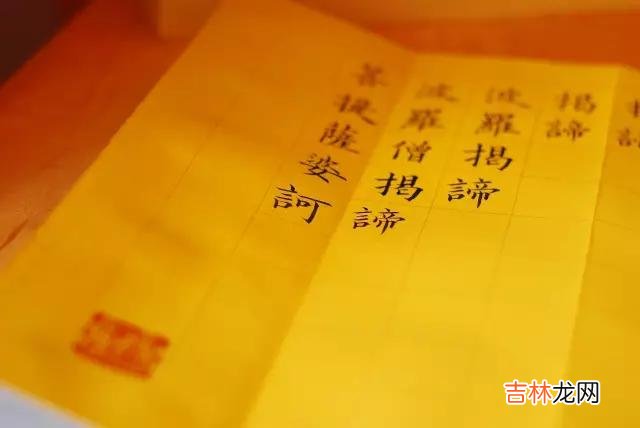 揭諦
波羅揭諦
波羅僧揭諦
菩提薩婆訶
吉林龙网